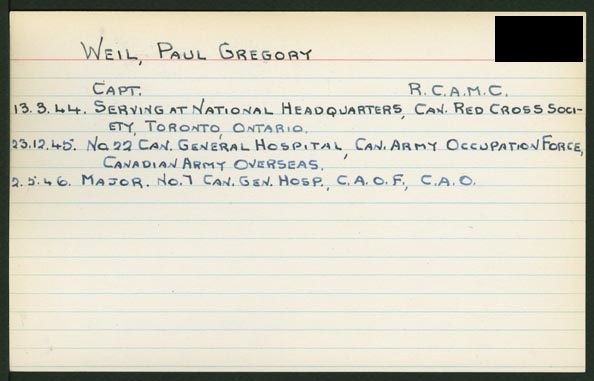 WEIL, PAUL GREGORY
CAPT. R.C.A.M.C.
13.3.44. SERVING AT NATIONAL HEADQUARTERS, CAN. RED CROSS SOCI-
ETY, TORONTO, ONTARIO.
23.12.45. NO. 22 CAN. GENERAL HOSPITAL, CAN. ARMY OCCUPATION FORCE,
CANADIAN ARMY OVERSEAS.
2.5.46. MAJOR. NO. 7 CAN. GEN. HOSP., C.A.O.F., C.A.O.